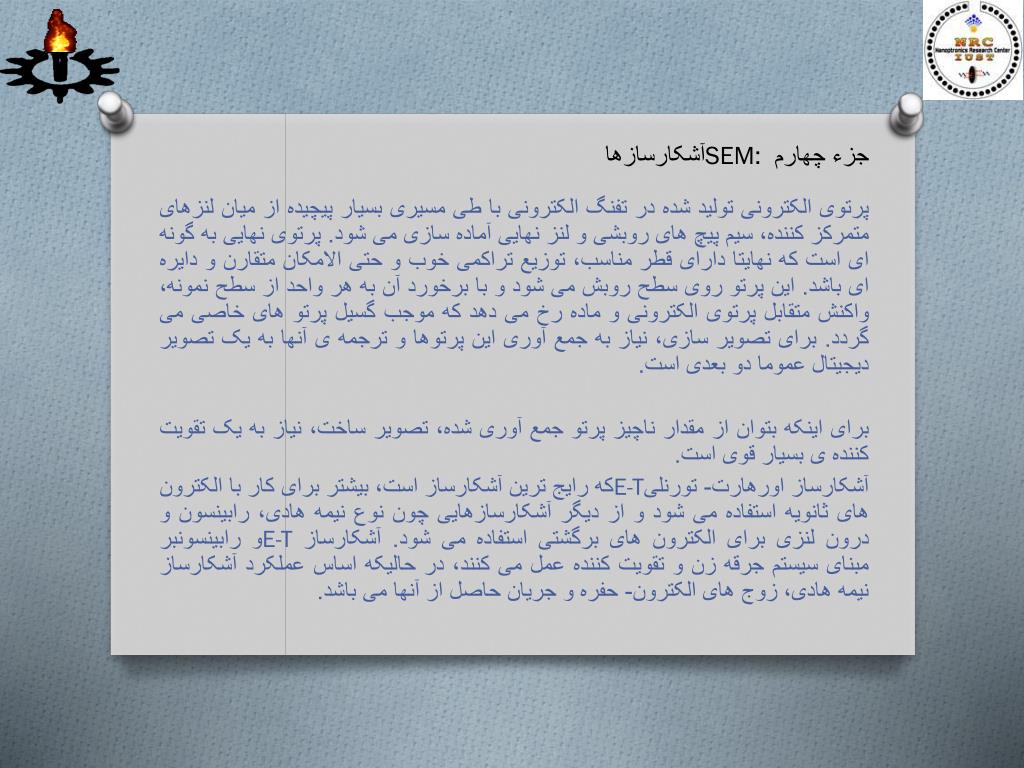 NRC
Nanoptronics Research Center
IUST
جزء چهارم :SEMآشکارسازها
پرتوی الکترونی تولید شده در تفنگ الکترونی با طی مسیری بسیار پیچیده از میان لنزهای
متمرکز کننده، سیم پیچ های روبشی و لنز نهایی آماده سازی می شود. پرتوی نهایی به گونه
ای است که نهایتا دارای قطر مناسب، توزیع تراکمی خوب و حتی الامکان متقارن و دایره
ای باشد. این پرتو روی سطح روبش می شود و با برخورد آن به هر واحد از سطح نمونه،
واکنش متقابل پرتوی الکترونی و ماده رخ می دهد که موجب گسیل پرتو های خاصی می
گردد. برای تصویر سازی، نیاز به جمع آوری این پرتوها و ترجمه ی آنها به یک تصویر
دیجیتال عموما دو بعدی است.
برای اینکه بتوان از مقدار ناچیز پرتو جمع آوری شده، تصویر ساخت، نیاز به یک تقویت
کننده ی بسیار قوی است.
آشکارساز اورهارت- تورنلیE-Tکه رایج ترین آشکارساز است، بیشتر برای کار با الکترون
های ثانویه استفاده می شود و از دیگر آشکارسازهایی چون نوع نیمه هادی، رابینسون و
درون لنزی برای الکترون های برگشتی استفاده می شود. آشکارساز E-Tو رابینسونبر
مبنای سیستم جرقه زن و تقویت کننده عمل می کنند، در حالیکه اساس عملکرد آشکارساز
نیمه هادی، زوج های الکترون- حفره و جریان حاصل از آنها می باشد.